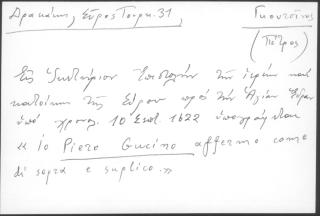 Δρακάκη, Σύρος Τουρκ. 31,
Γκουτσίνος
(Πέτρος)
Εἰς Ἱκετήριον Ἐπιστολήν τῶν ἱερέων καὶ
κατοίκων τῆς Σύρου πρὸς τὴν Ἁγίαν Ἕδραν
ὑπὸ χρονολ. 10 Σεπτ. 1622 ὑπογράφεται
« Io Piero Gucino affermo come
di sopra e suplico. »